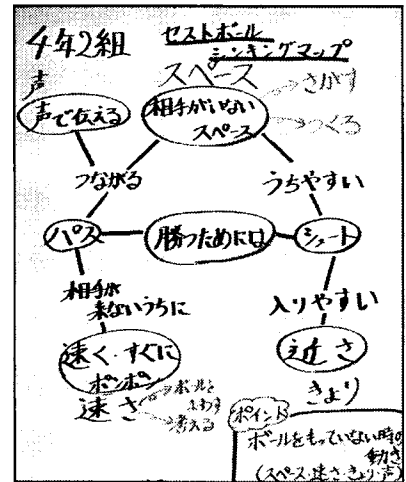 4年2組
セストボール
シンキングマップ
声
スペース
声で伝える
相手がいない
スペース
さがす
つくる
つながる
うちやすい
パス
勝つためには
シュート
相手が
来ないうちに
入りやすい
速く・すぐに
ポンポン
近さ
速さ
ボールを
考える
きょり
ポイント
ボールをもっていない時の
動き
(スペース・速さ・きょり・声)